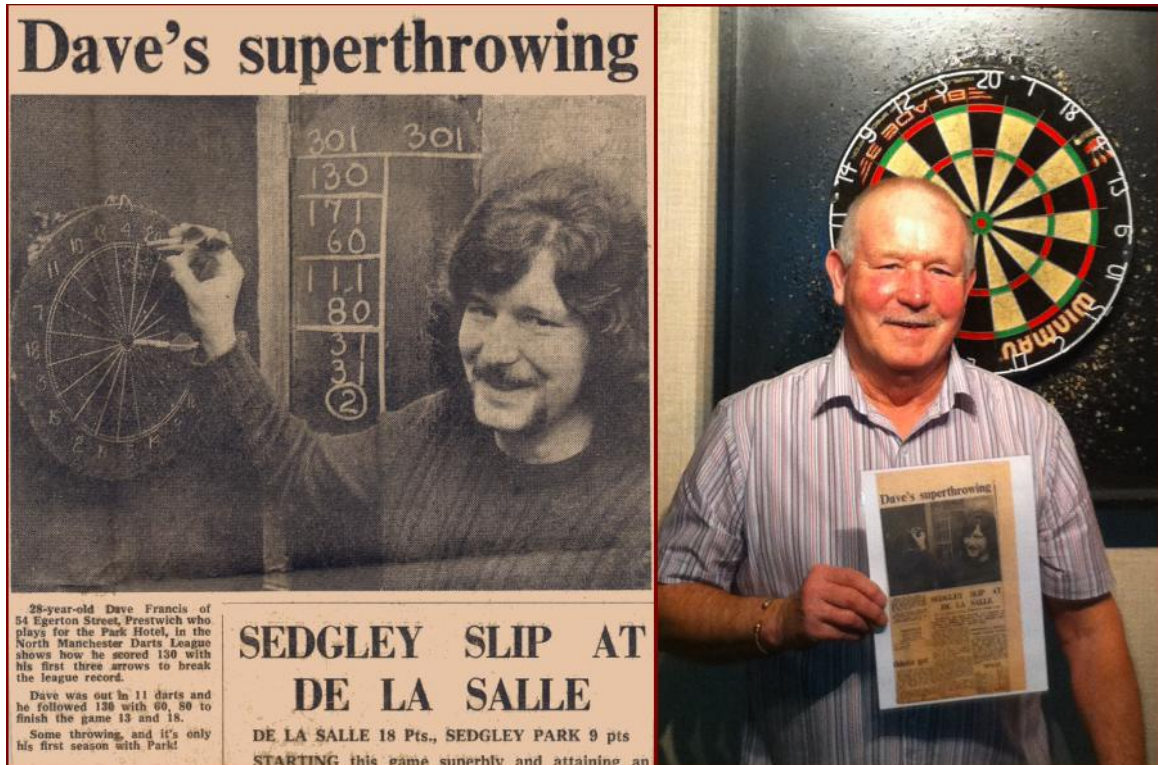 Dave's superthrowing
301 301
130
171
60
111
80
31
31
2
28-year-old Dave Francis of
54 Egerton Street, Prestwich who
plays for the Park Hotel, in the
North Manchester Darts League
shows how he scored 130 with
his first three arrows to break
the league record.
Dave was out in 11 darts and
he followed 130 with 60, 80 to
finish the game 13 and 18.
Some throwing, and it's only
his first season with Park!
SEDGLEY SLIP AT
DE LA SALLE
DE LA SALLE 18 Pts., SEDGLEY PARK 9 pts
STARTING this game superbly and attaining an
11 14 9 12 5 20 1 18 4 13 6 10 15 2
BLADE
WINMAU
Dave's superthrowing
SEDGLEY SLIP AT
DE LA SALLE